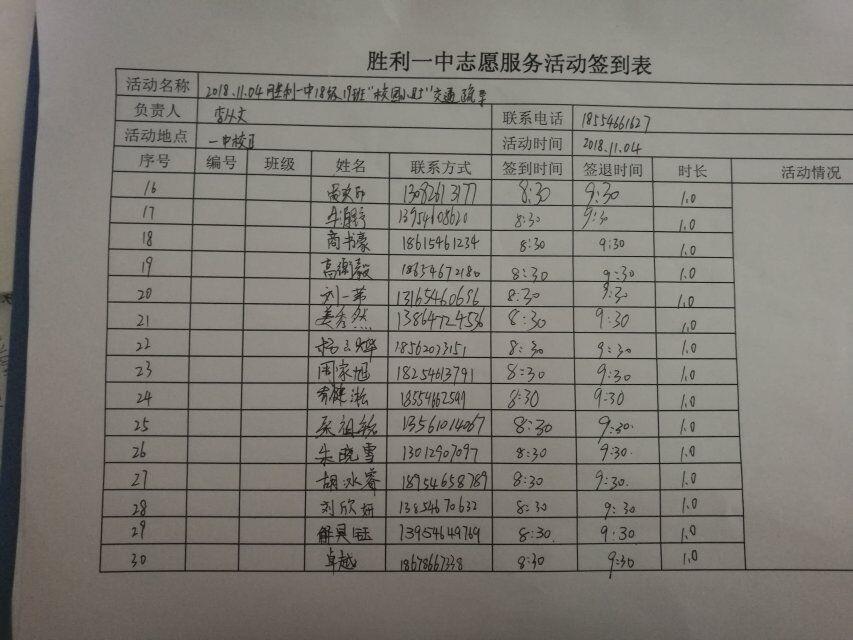 胜利一中志愿服务活动签到表
活动名称 2018.11.04胜利一中18级19班"校园小段"交通疏导
负责人 联系电话 18554661627
活动地点 一中校门 活动时间 2018.11.04
序号 编号 班级 姓名 联系方式 签到时间 签退时间 时长 活动情况
16 8:30 9:30 1.0
17 13954108620 8:30 9:30 1.0
18 商书豪 18615461234 8:30 9:30 1.0
19 高衡毅 18654672180 8:30 9:30 1.0
20 刘一苇 13165460686 8:30 9:30 1.0
21 姜秀然 13864724536 8:30 9:30 1.0
22 18562033151 8:30 9:30 1.0
23 周家旭 18254613791 8:30 9:30 1.0
24 18554662549 8:30 9:30 1.0
25 13561014067 8:30 9:30 1.0
26 朱晓雪 13012907097 8:30 9:30 1.0
27 胡冰睿 18954658789 8:30 9:30 1.0
28 刘欣妍 13854670632 8:30 9:30 1.0
29 解具钰 13954649769 8:30 9:30 1.0
30 卓越 18678667338 8:30 9:30 1.0